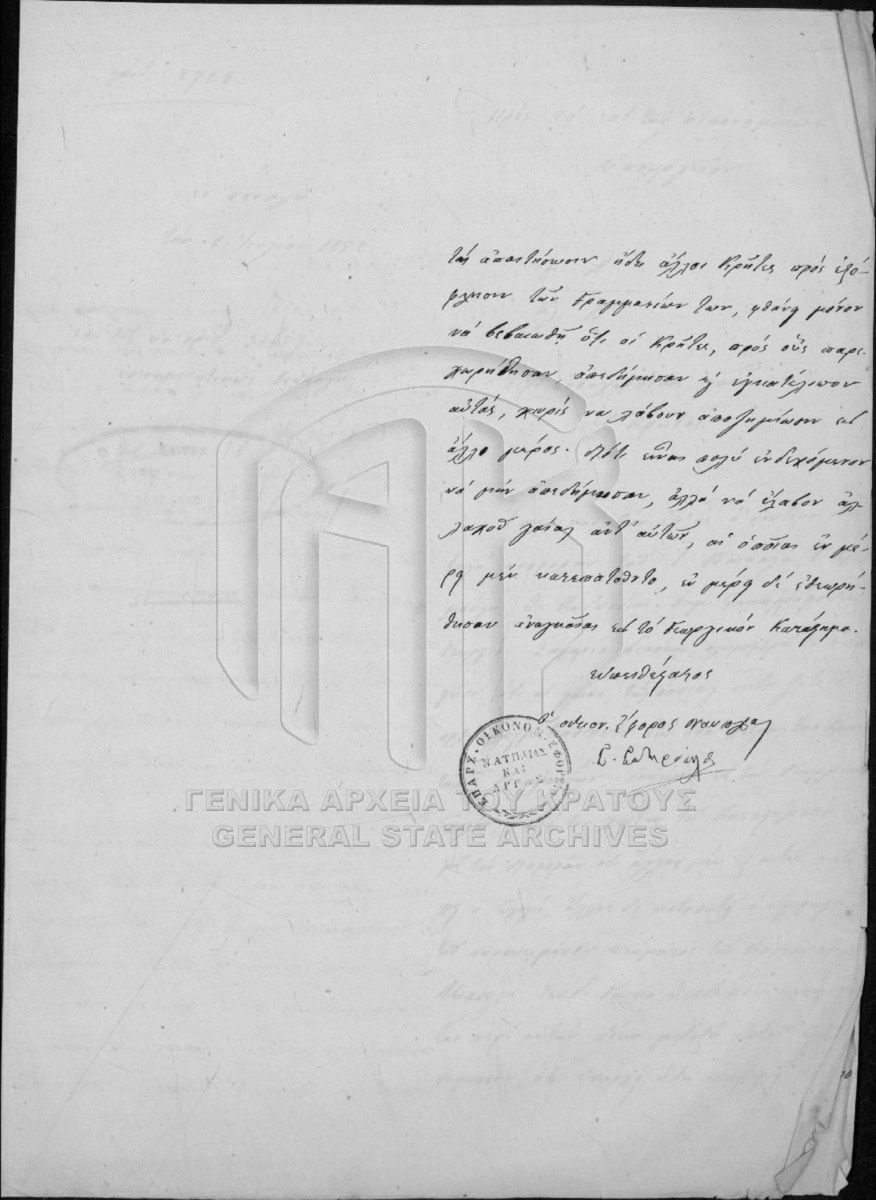 τὰς ἀπαιτήσωσιν ἤδη ἄλλοι Κρῆτες πρὸς ἐξό-
φλησιν τῶν Γραμματίων των, φθάνῃ μόνον
νὰ βεβαιωθῇ ὅτι οἱ Κρῆτες, πρὸς οὓς παρε-
χωρήθησαν, ἀπεδήμησαν ἐγκατέλιπον
αὐτάς, χωρὶς νὰ λάβουν ἀποζημίωσιν εἰς
ἄλλο μέρος. διότι εἶναι πολὺ ἐνδεχόμενον
νὰ μὴν ἀπεδήμησαν, ἀλλὰ νὰ ἔλαβον ἀλ-
λαχοῦ γαίας ἀντ' αὐτῶν, αἱ ὁποῖαι ἐν μέ-
ρῃ μὲν κατεπατοῦντο, ἐν μέρῃ δὲ ἐθεωρή-
θησαν ἀναγκαῖαι εἰς τὸ Γεωργικὸν Κατάστημα.
εὐπειθέστατος
ὁ οἰκον. ἔφορος Ναυπλίας
ΕΠΑΡΧ. ΟΙΚΟΝΟΜ. ΕΦΟΡΕΙΑ
ΝΑΥΠΛΙΑΣ
ΚΑΙ
ΑΡΓΟΥΣ
ΓΕΝΙΚΑ ΑΡΧΕΙΑ ΤΟΥ ΚΡΑΤΟΥΣ
GENERAL STATE ARCHIVES